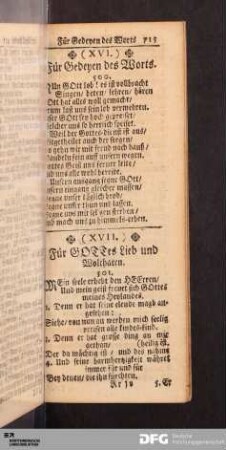 Für Gedeyen des Worts 713
(XVI.)
Für Gedeyen des Worts.
500.
NUn GOtt lob! es ist vollbracht
Singen, beten, lehren, hören
GOtt hat alles wohl gemacht,
drum last uns sein lob vermehren.
unser GOtt sey hoch gepreiset,
welcher uns so herrlich speiset.
Weil der Gottes-dienst ist aus,
mitgetheilet auch der segen,
so gehn wir mit freud nach hauß,
wandeln fein auf unsern wegen.
Gottes Geist uns ferner leite,
und uns alle wohl bereite.
Unsern ausgang segne GOtt,
unsern eingang gleicher massen,
segne unser täglich brod,
segne unser thun und lassen,
segne uns mit sel'gen sterben,
und mach uns zu himmels-erben.
(XVII.)
Für GOTTes Lieb und
Wolthaten.
501.
MEin seele erhebt den HERren,
Und mein geist freuet sich GOttes
meines Heylandes.
2. Denn er hat seine elende magd an-
gesehen:
Siehe, von nun an werden mich selig
preisen alle kindes-kind.
3. Denn er hat große ding an mir
gethan, (heilig ist.
Der da mächtig ist, und des nahme
4. Und seine barmhertzigkeit währet
immer für und für
Bey denen, die ihn fürchten.
5. Er